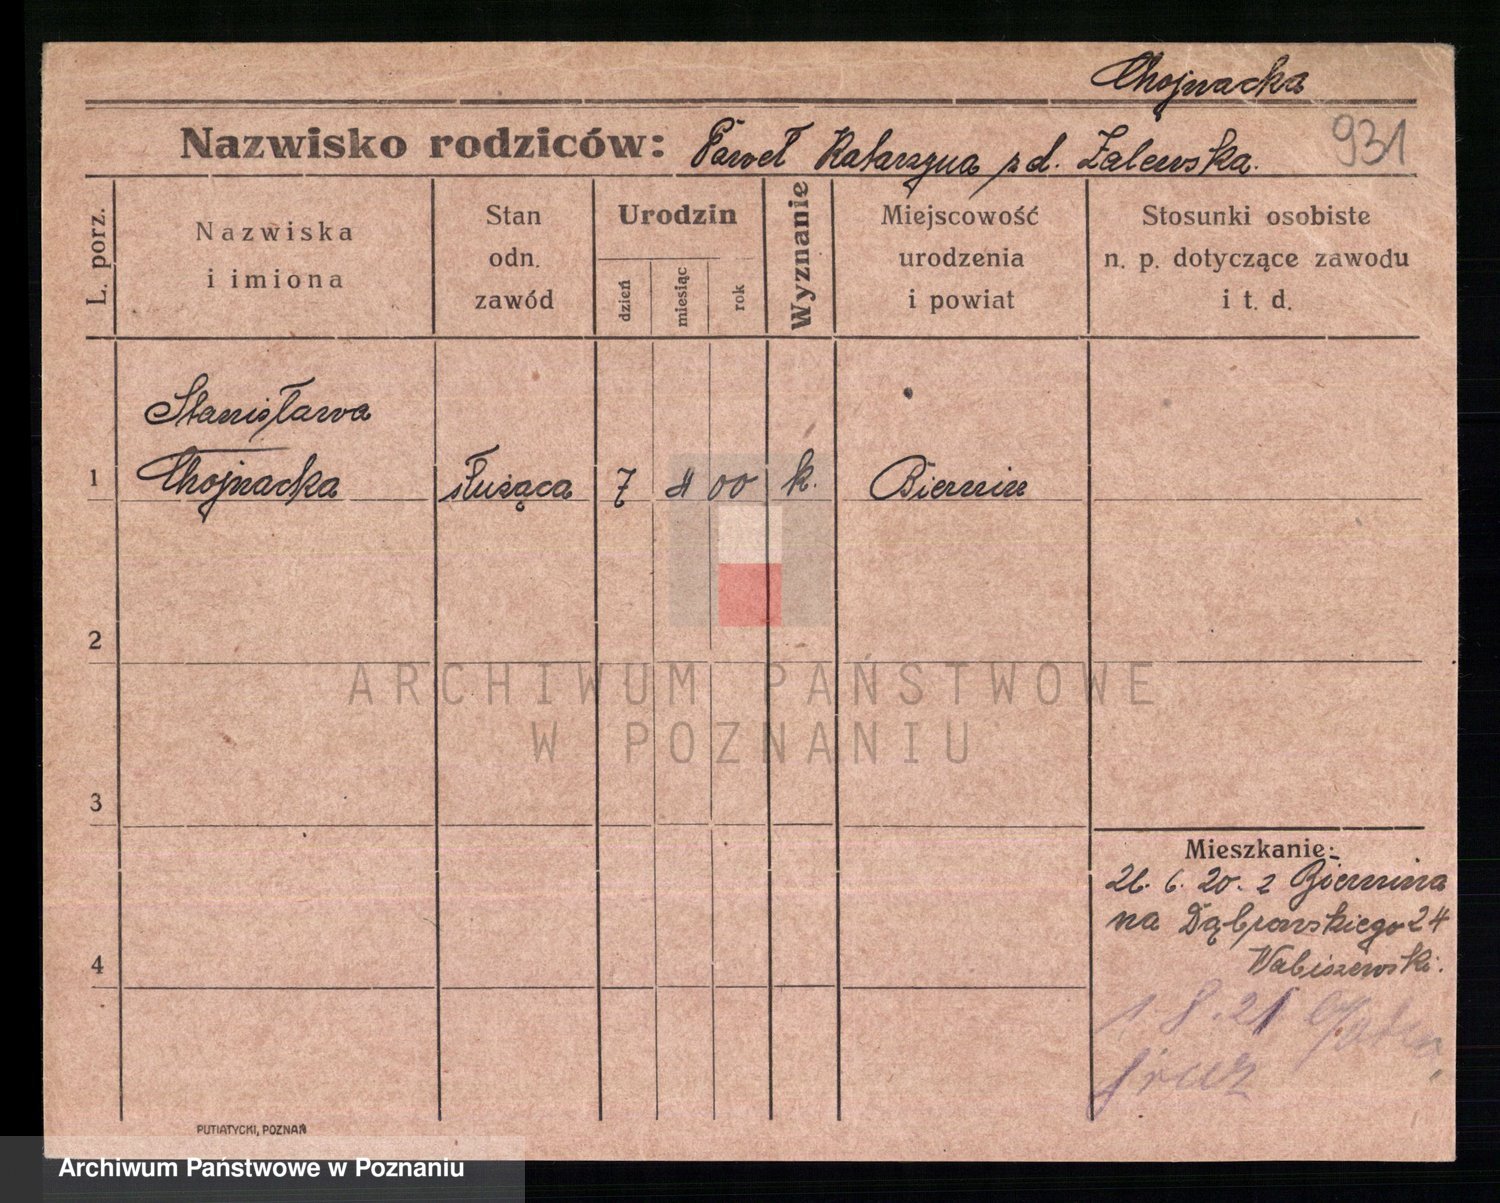 Chojnacka
931
Nazwisko rodziców: Paweł Katarzyna z d. Zalewska.
L. porz.
Nazwiska
i imiona
Stan
odn.
zawód
Urodzin
dzień
miesiąc
rok
Wyznanie
Miejscowość
urodzenia
i powiat
Stosunki osobiste
n. p. dotyczące zawodu
i t. d.
Stanisława
1 Chojnacka służąca 7 4 00 k. Biernin
2
ARCHIWUM PAŃSTWOWE
W POZNANIU
3
Mieszkanie:
26. 6. 20. z Biernina
na Dąbrowskiego 24
4
Wabiszewski.
1 8. 21
PUTIATYCKI, POZNAŃ
Archiwum Państwowe w Poznaniu